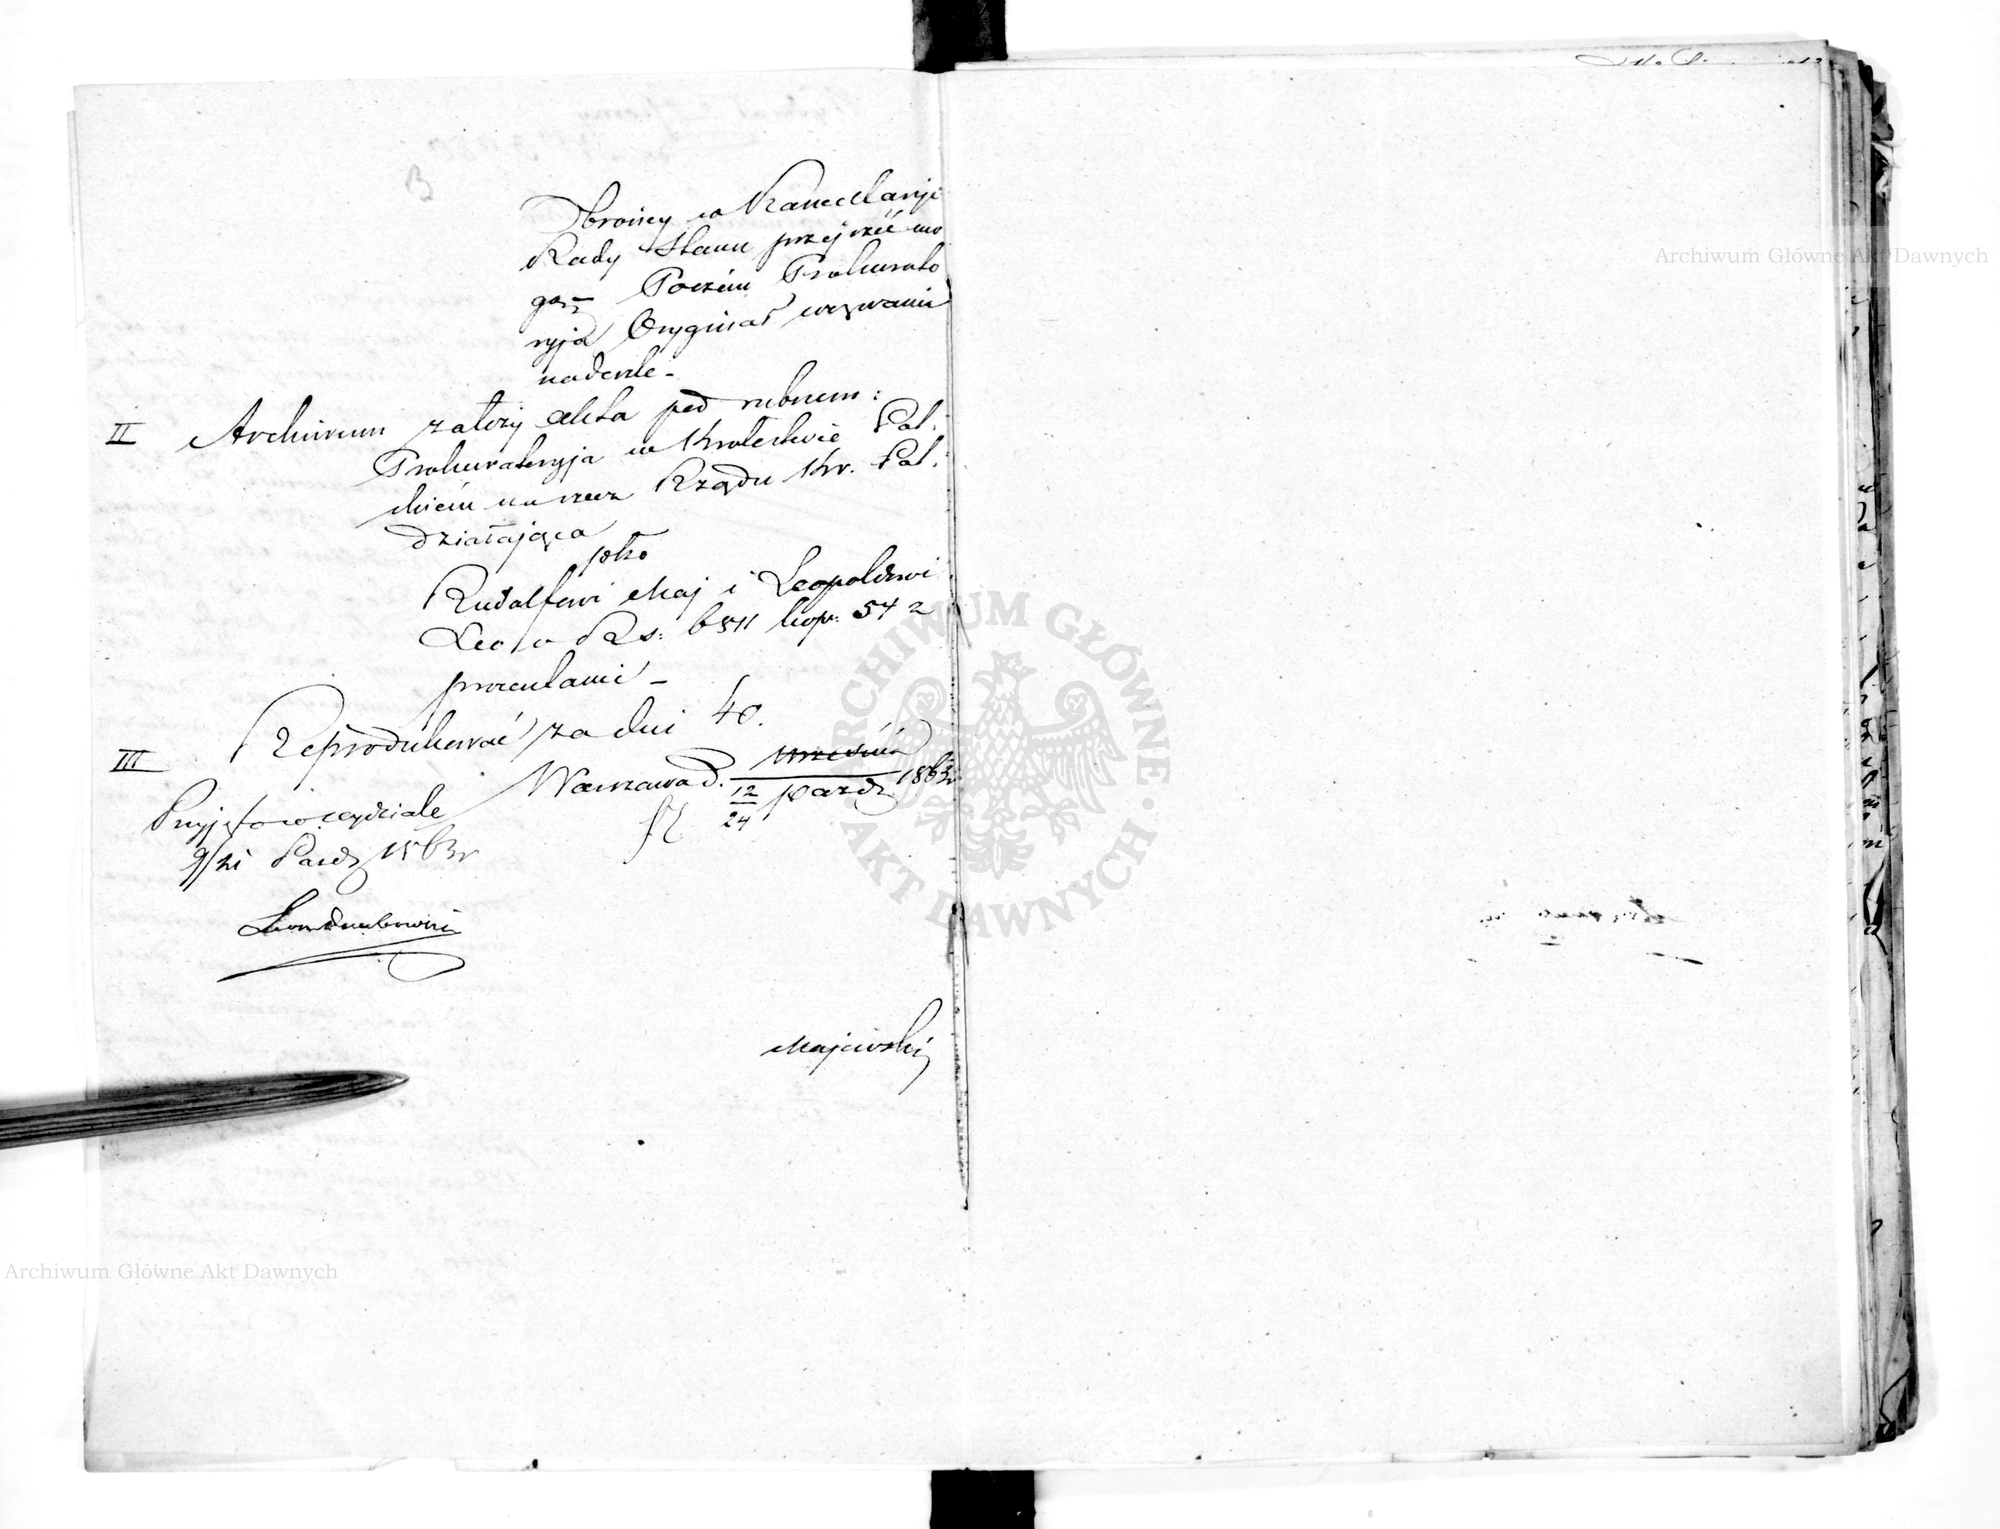 Obrońcy w Kancellaryi
Rady Stanu przejrzeć mo
gą – Poczém Prokurato
ryja Oryginał wezwania
nadeszle –
II Archiwum założy akta pod rubrum:
Prokuratoryja w Królestwie Pol.
skiém na rzecz Rządu Kr. Pol.
działająca
pko
Rudolfowi May i Leopoldowi
Leo o Rs: 6511 kop: 54 z
procentami –
III Reprodukować za dni 40.
Warszawa d. 12/24 Września paźdz 1863 r
Przyjęto w wydziale
9/21 Paźdz 1863 r
Majewski
Archiwum Główne Akt Dawnych
Archiwum Główne Akt Dawnych
ARCHIWUM GŁÓWNE · AKT DAWNYCH ·